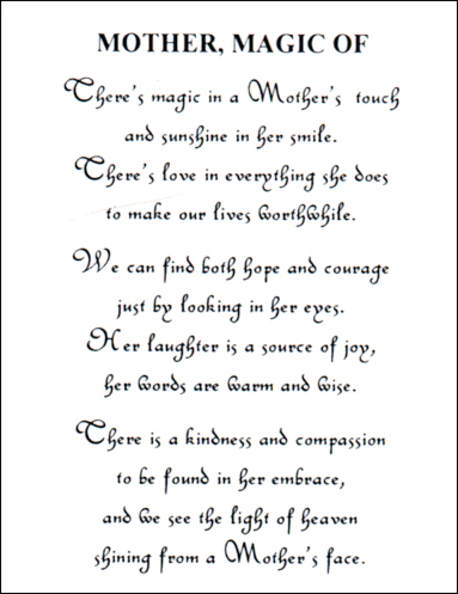 MOTHER, MAGIC OF
There's magic in a Mother's touch
and sunshine in her smile.
There's love in everything she does
to make our lives worthwhile.
We can find both hope and courage
just by looking in her eyes.
Her laughter is a source of joy,
her words are warm and wise.
There is a kindness and compassion
to be found in her embrace,
and we see the light of heaven
shining from a Mother's face.